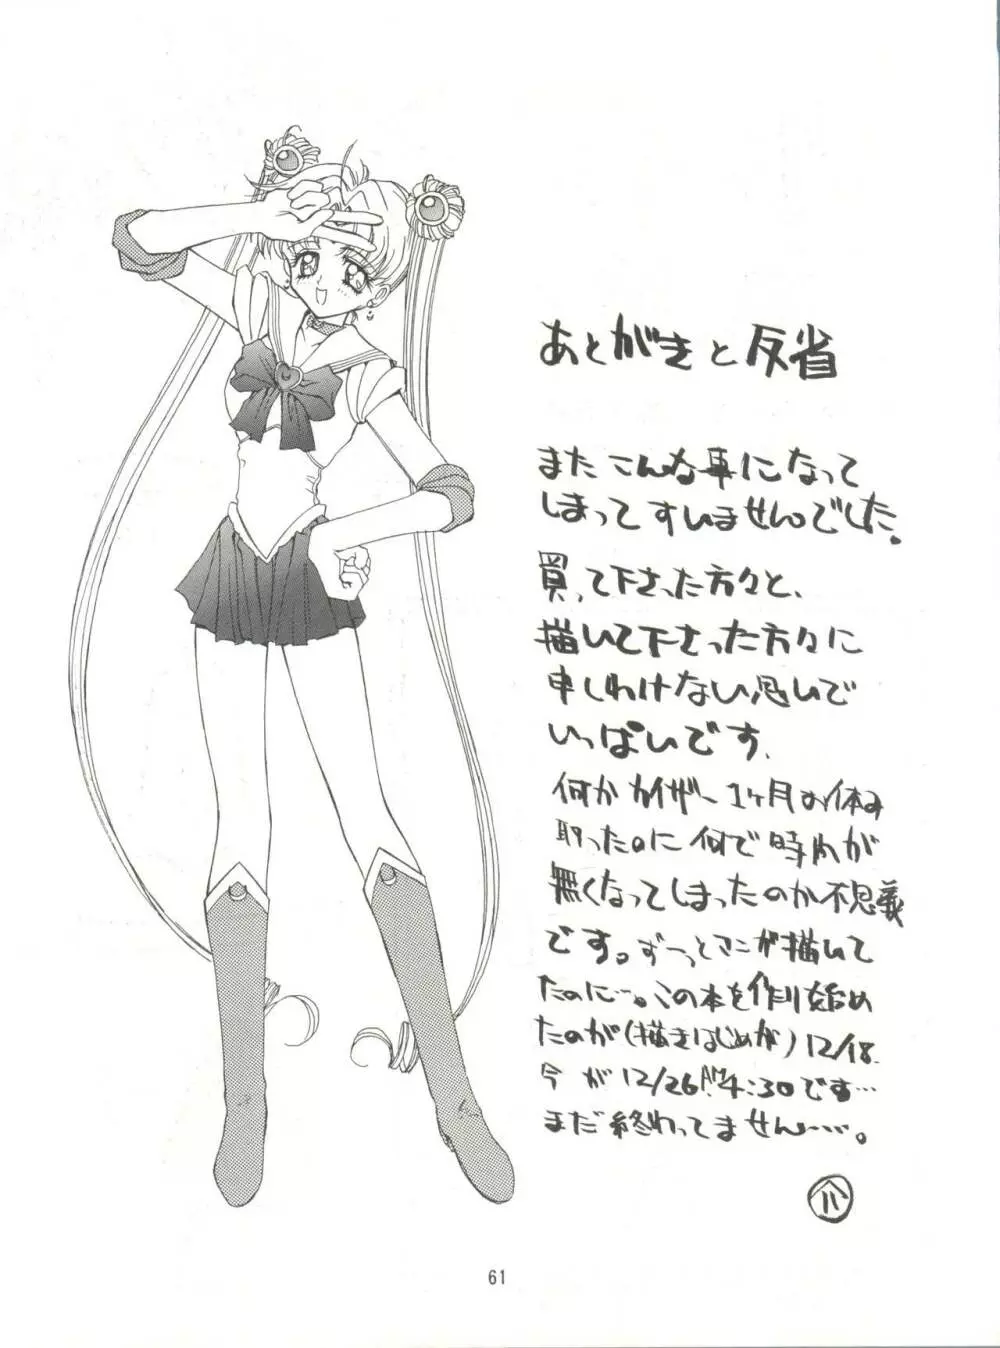 あとがきと反省
またこんな事になって
しまってすいませんでした。
買って下さった方々と、
描いて下さった方々に
申しわけない思いで
いっぱいです。
何かカイザー1ヶ月お休み
取ったのに何で時間が
無くなってしまったのか不思議
です。ずーっとマンガ描いて
たのに…。この本を作り始め
たのが(描きはじめが)12/18.
今が12/26!AM4:30です…
まだ終わってません……。
61